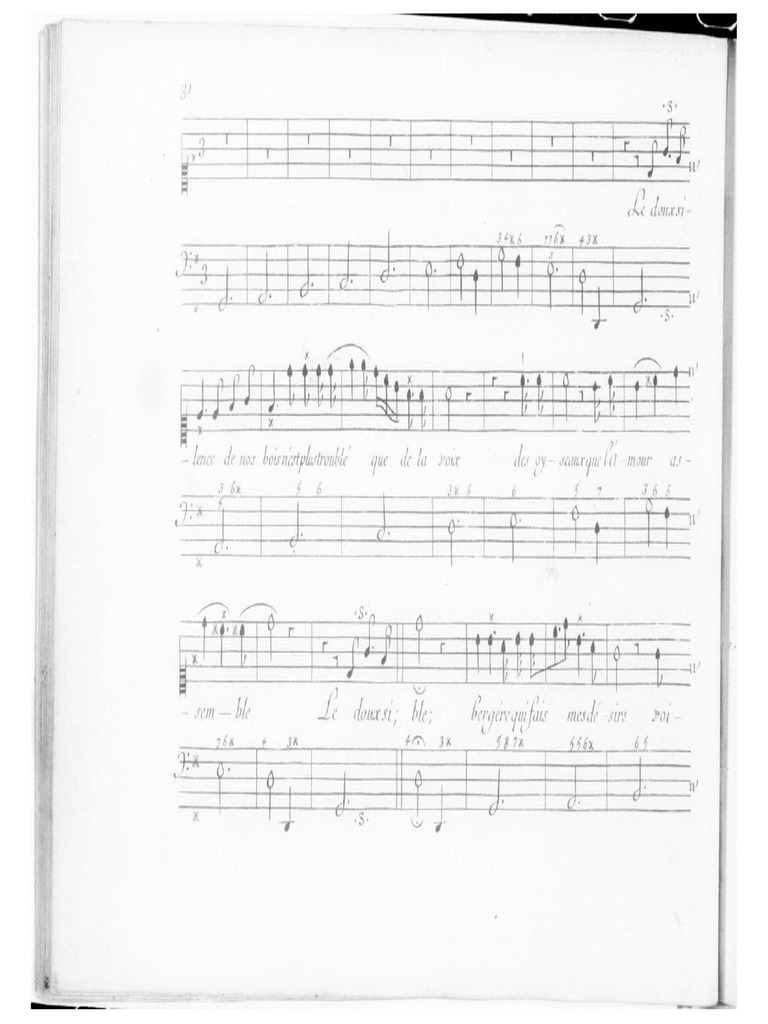 31
.S.
3
Le doux si-
3 4x 6 7 7 6x 4 3x
3
.S.
-lence de nos bois n'est plus troublé que de la voix des oy-seaux que l'a-mour as-
3 6x 5 6 3x 6 6 5 7 3 6 6
5
.S.
-sem-ble Le doux si; ble; bergère qui fais mes dé-sirs voi-
7 6x 4 3x 4 3x 5 8 7x 5 5 6x 6 5
.S.